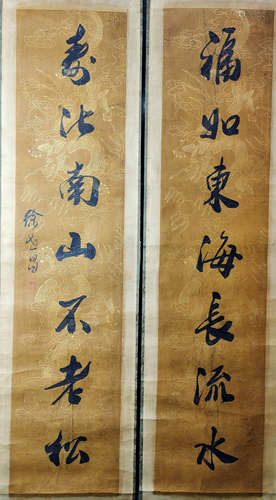 福如東海長流水
壽比南山不老松
徐世昌